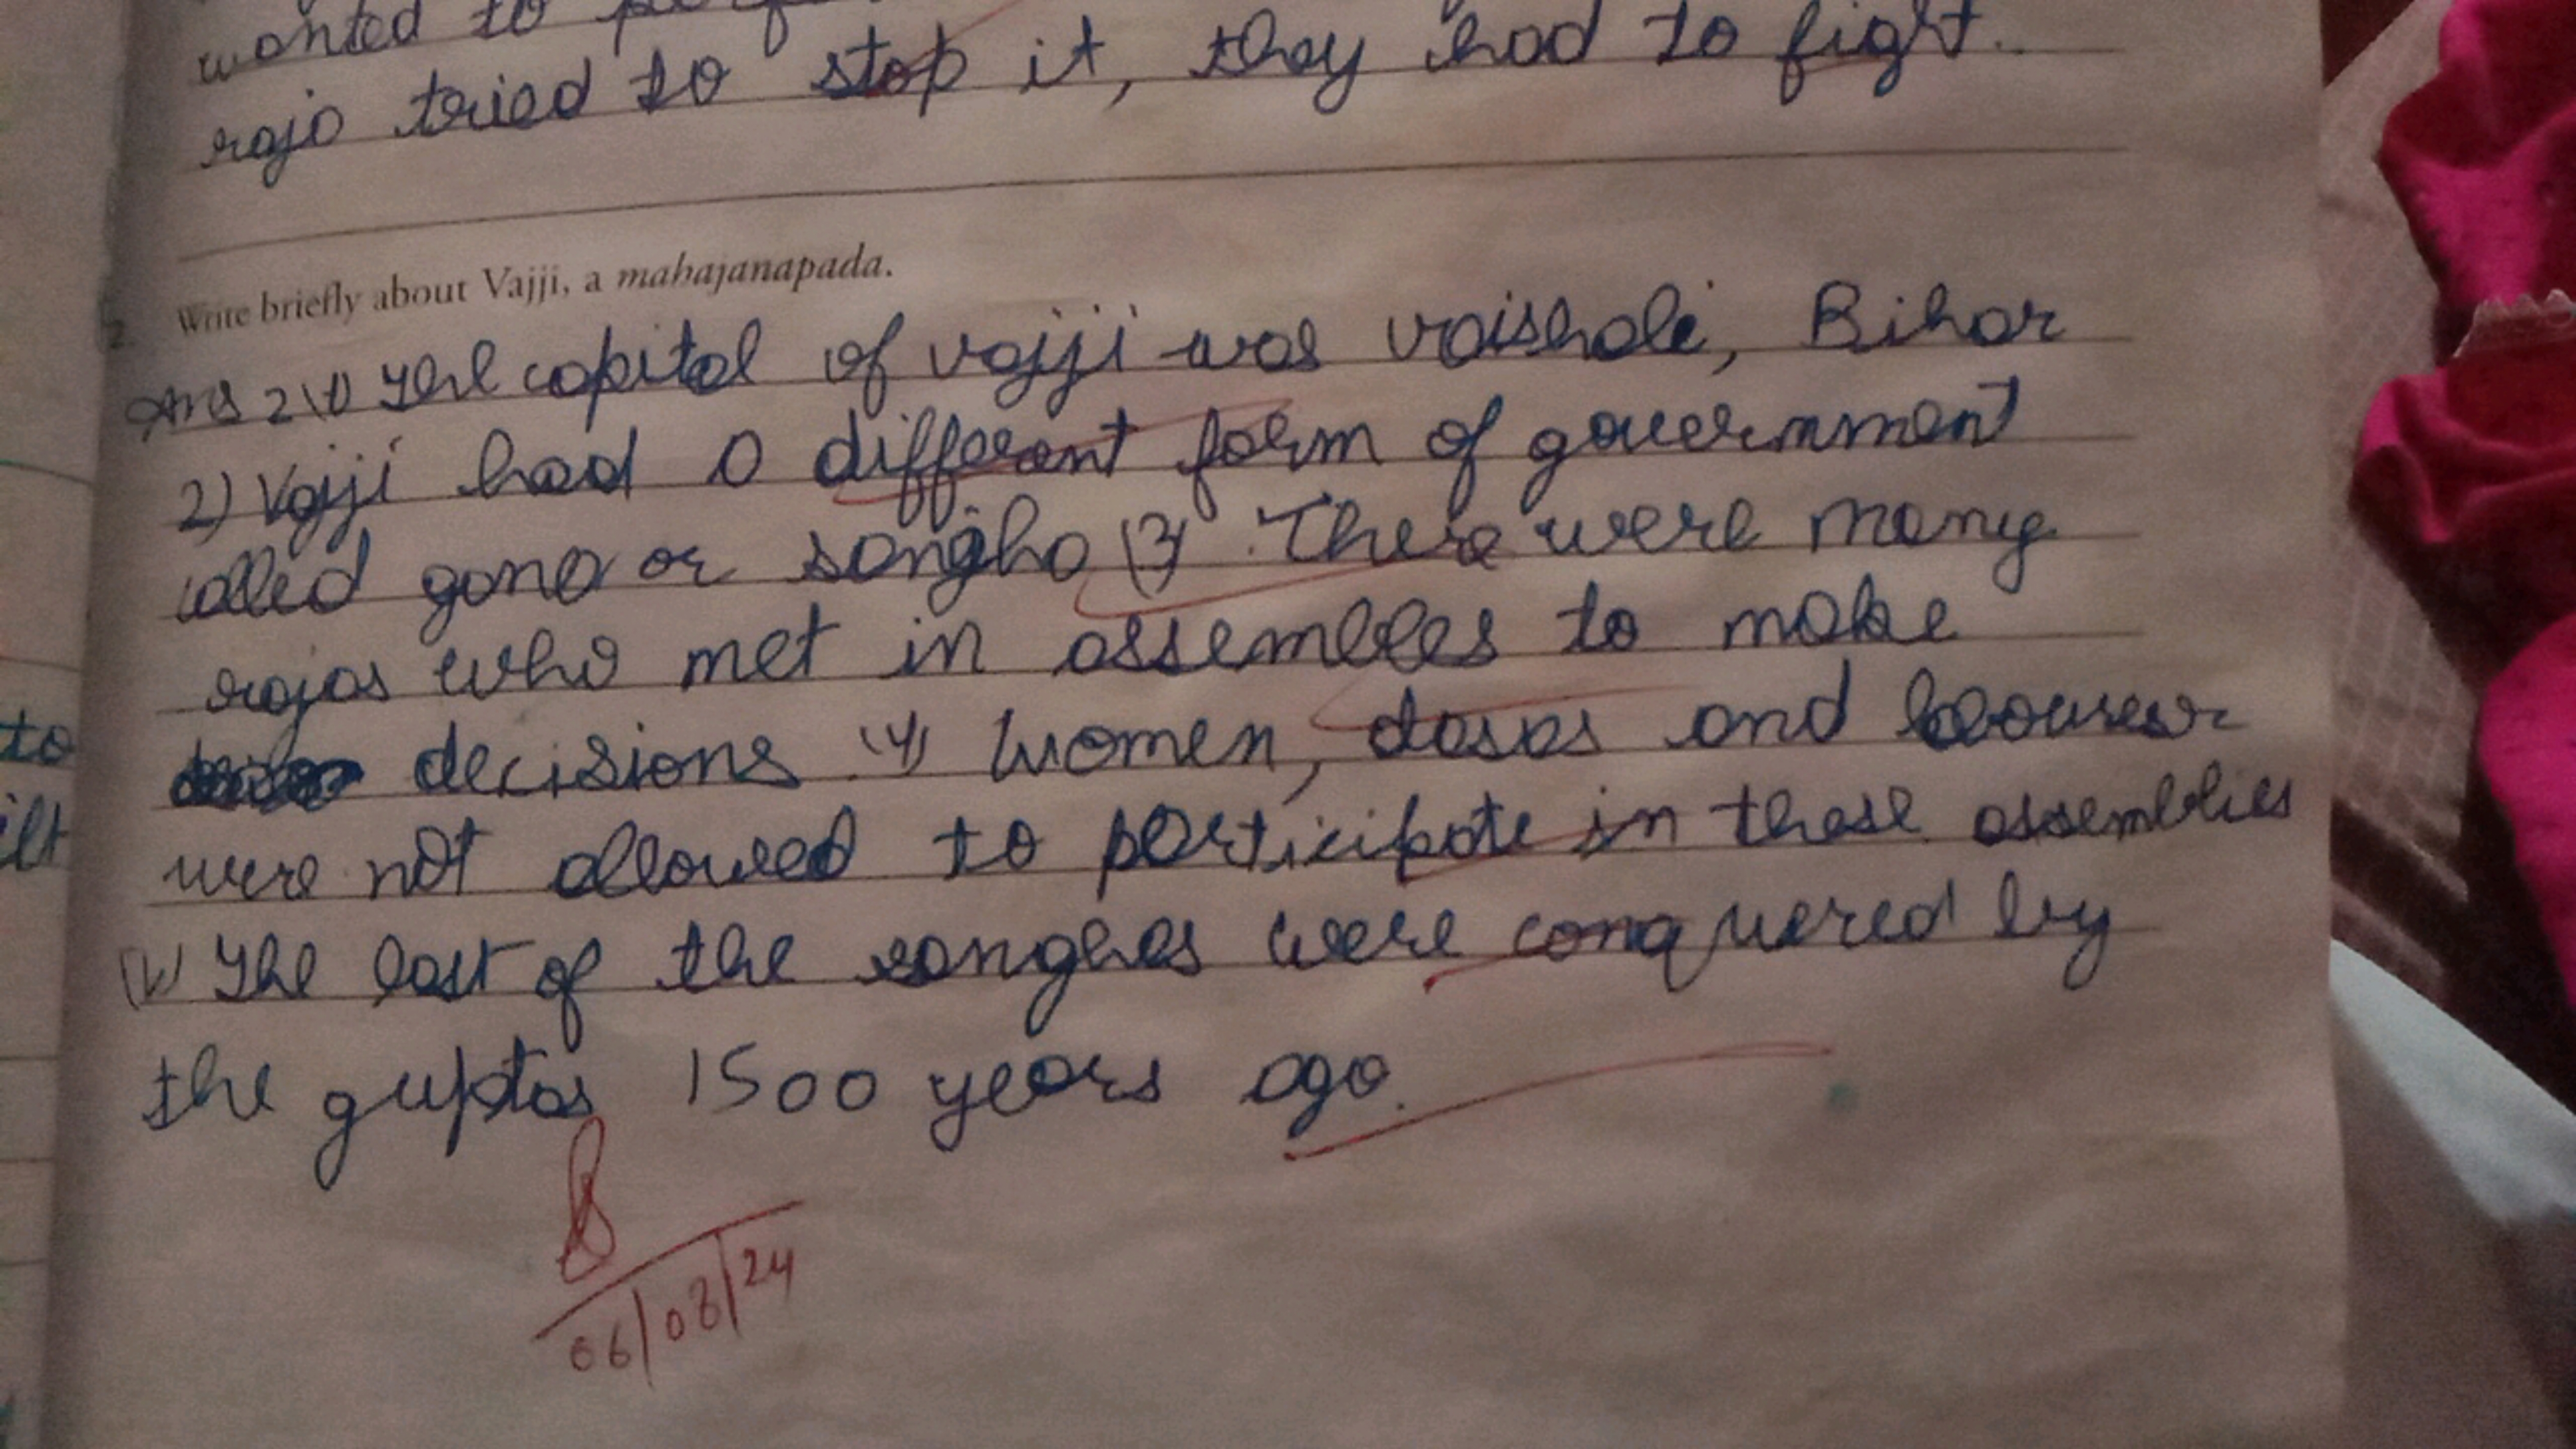 wanted to
raja tried to stop it, they had to fight.
2. Write briefly about Vajji, a mahajanapada.
Ans 2 (1) The capital of vajji was vaishali, Bihar
2) Vajji had a different form of government
called gana or sangha (3) There were many
rajas who met in assemblies to make
decisions (4) Women, dasas and
were not allowed to participate in these assemblies
(V) The last of the sanghas were conquered by
the guptas 1500 years ago.
06/08/24
to
ilt